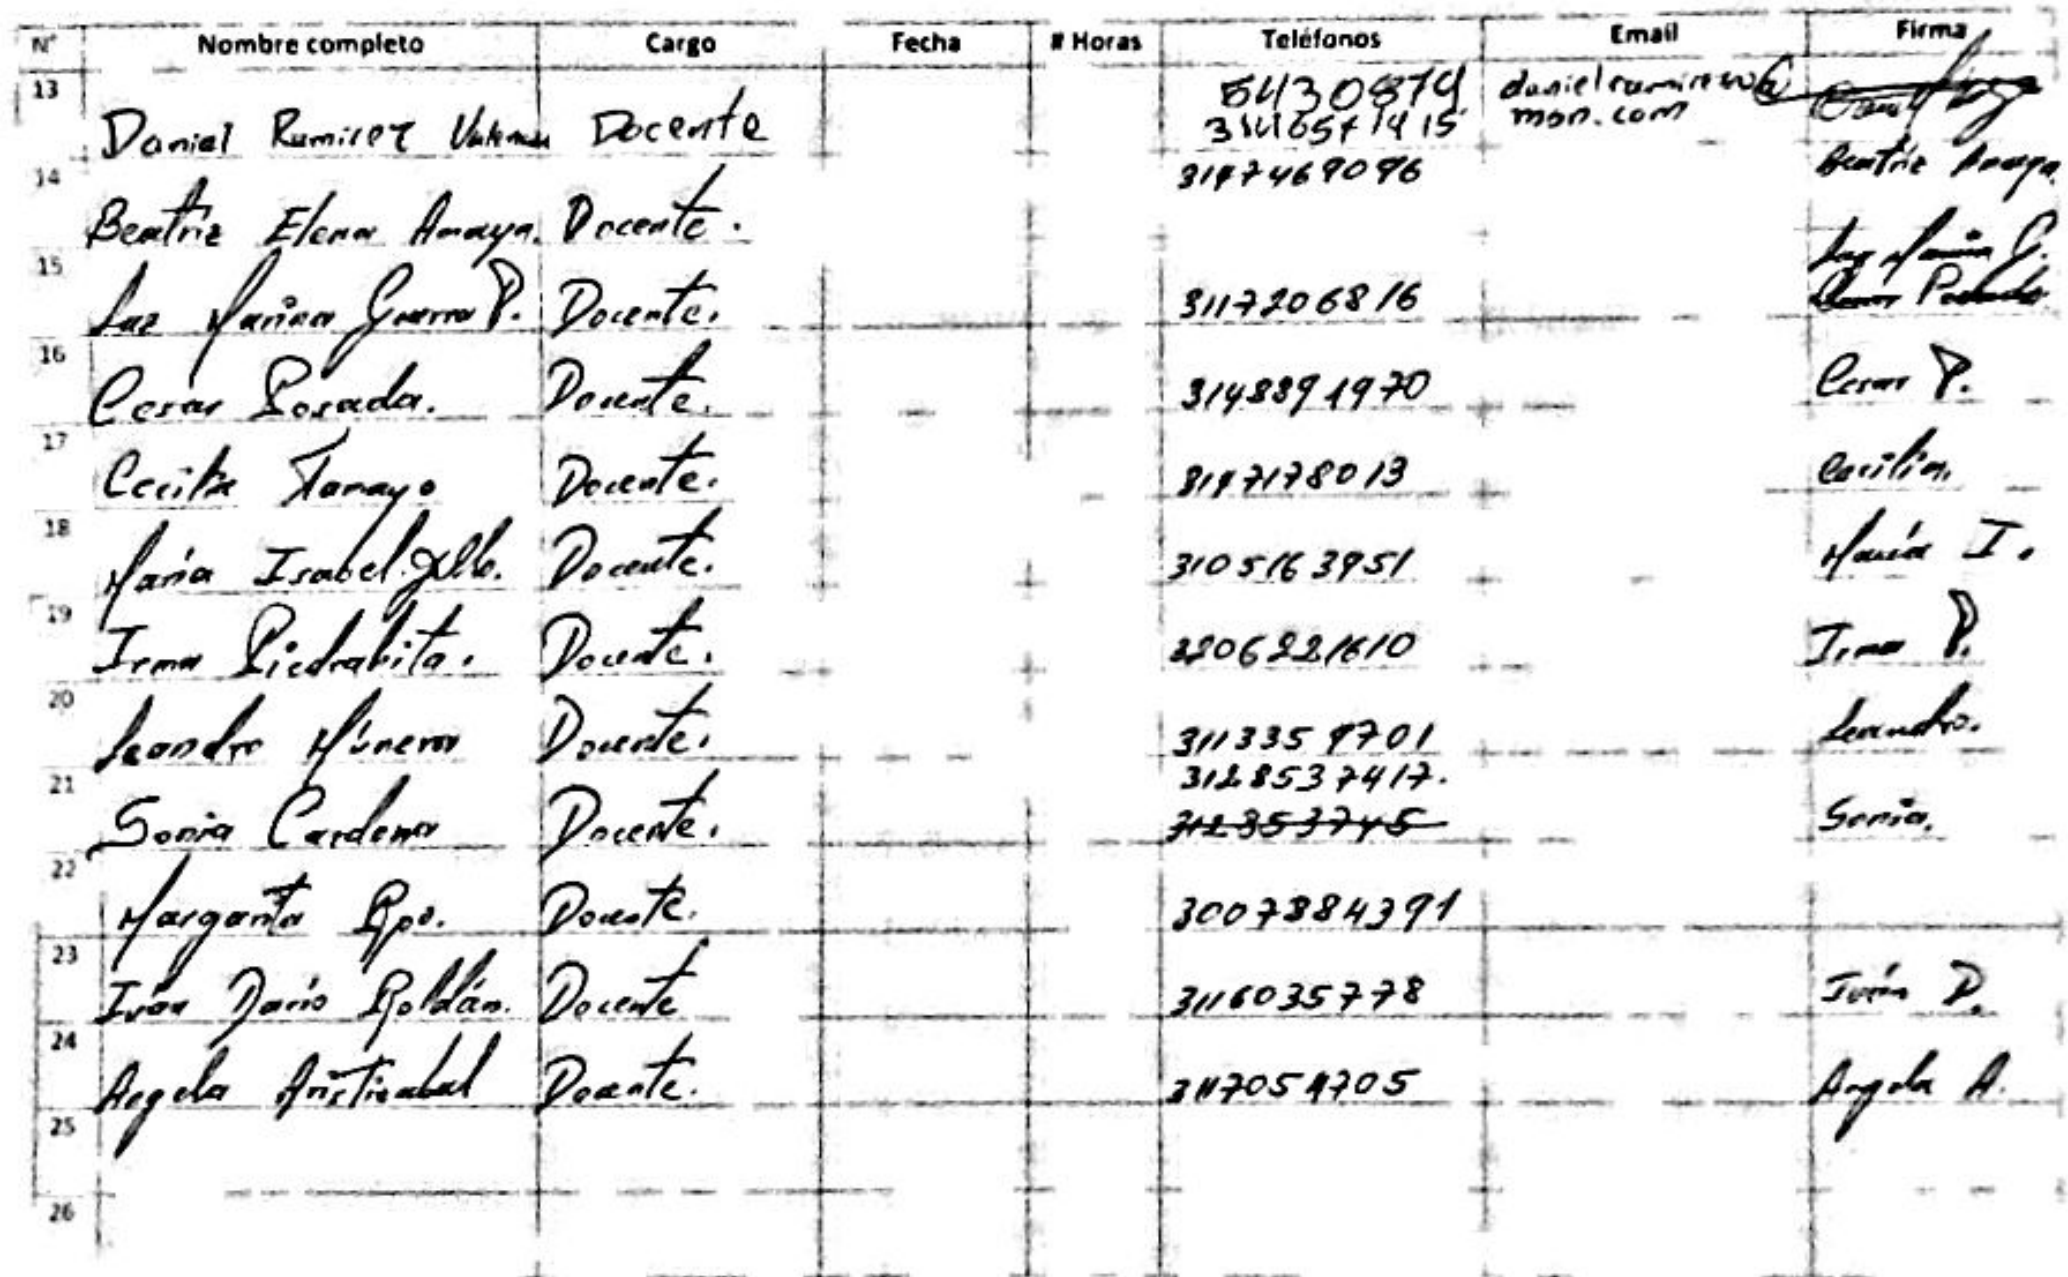 N° Nombre completo Cargo Fecha # Horas Teléfonos Email Firma
13 Daniel Ramirez Docente msn.com
14 Beatriz Elena Amaya. Docente. 3147469096 Beatriz Amaya.
15 Luz Marina Guerra P. Docente. 3117206816 Luz Marina G.
16 Cesar Posada. Docente. 3148891970 Cesar P.
17 Cecilia Tamayo Docente. 3147178013 Cecilia.
18 María Isabel Docente. 3105163951 María I.
19 Irma Piedrahita. Docente. 3206221610 Irma P.
20 Leandro Múnera Docente. 3113359701 Leandro.
21 Sonia Cardona Docente. 3128537417. Sonia.
22 Margarita Rpo. Docente. 3007884391
23 Iván Darío Roldán. Docente 3116035778 Iván D.
24 Angela Aristizabal Docente. 3117054705 Angela A.
25
26